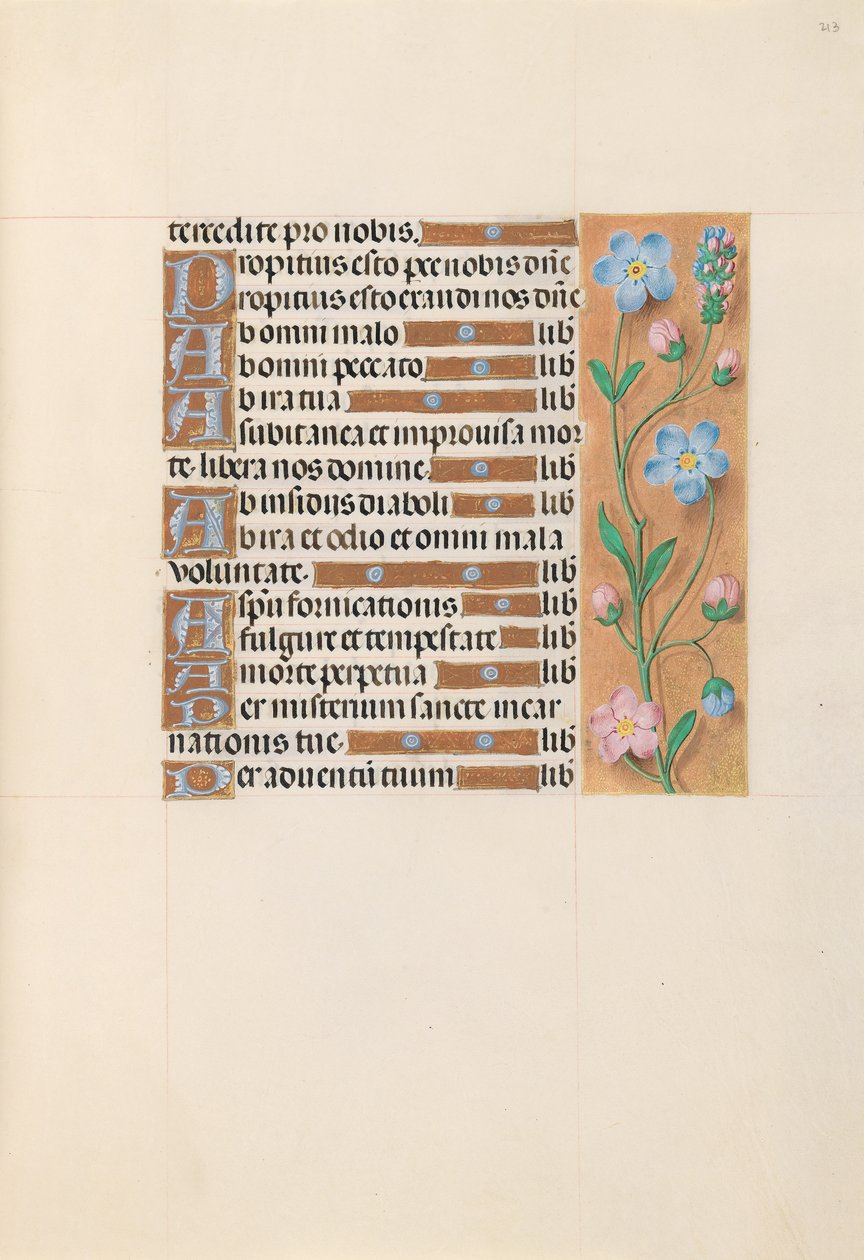 213
tercedite pro nobis.
Propitius esto parce nobis dn̄e
Propitius esto exaudi nos dn̄e
Ab omni malo lib̄
Ab omni peccato lib̄
Ab ira tua lib̄
A subitanea et improuisa mor
te. libera nos domine. lib̄
Ab insidiis diaboli lib̄
Ab ira et odio et omni mala
voluntate. lib̄
A spū fornicationis lib̄
A fulgure et tempestate lib̄
A morte perpetua lib̄
Per misterium sancte incar
nationis tue. lib̄
Per aduentū tuum lib̄